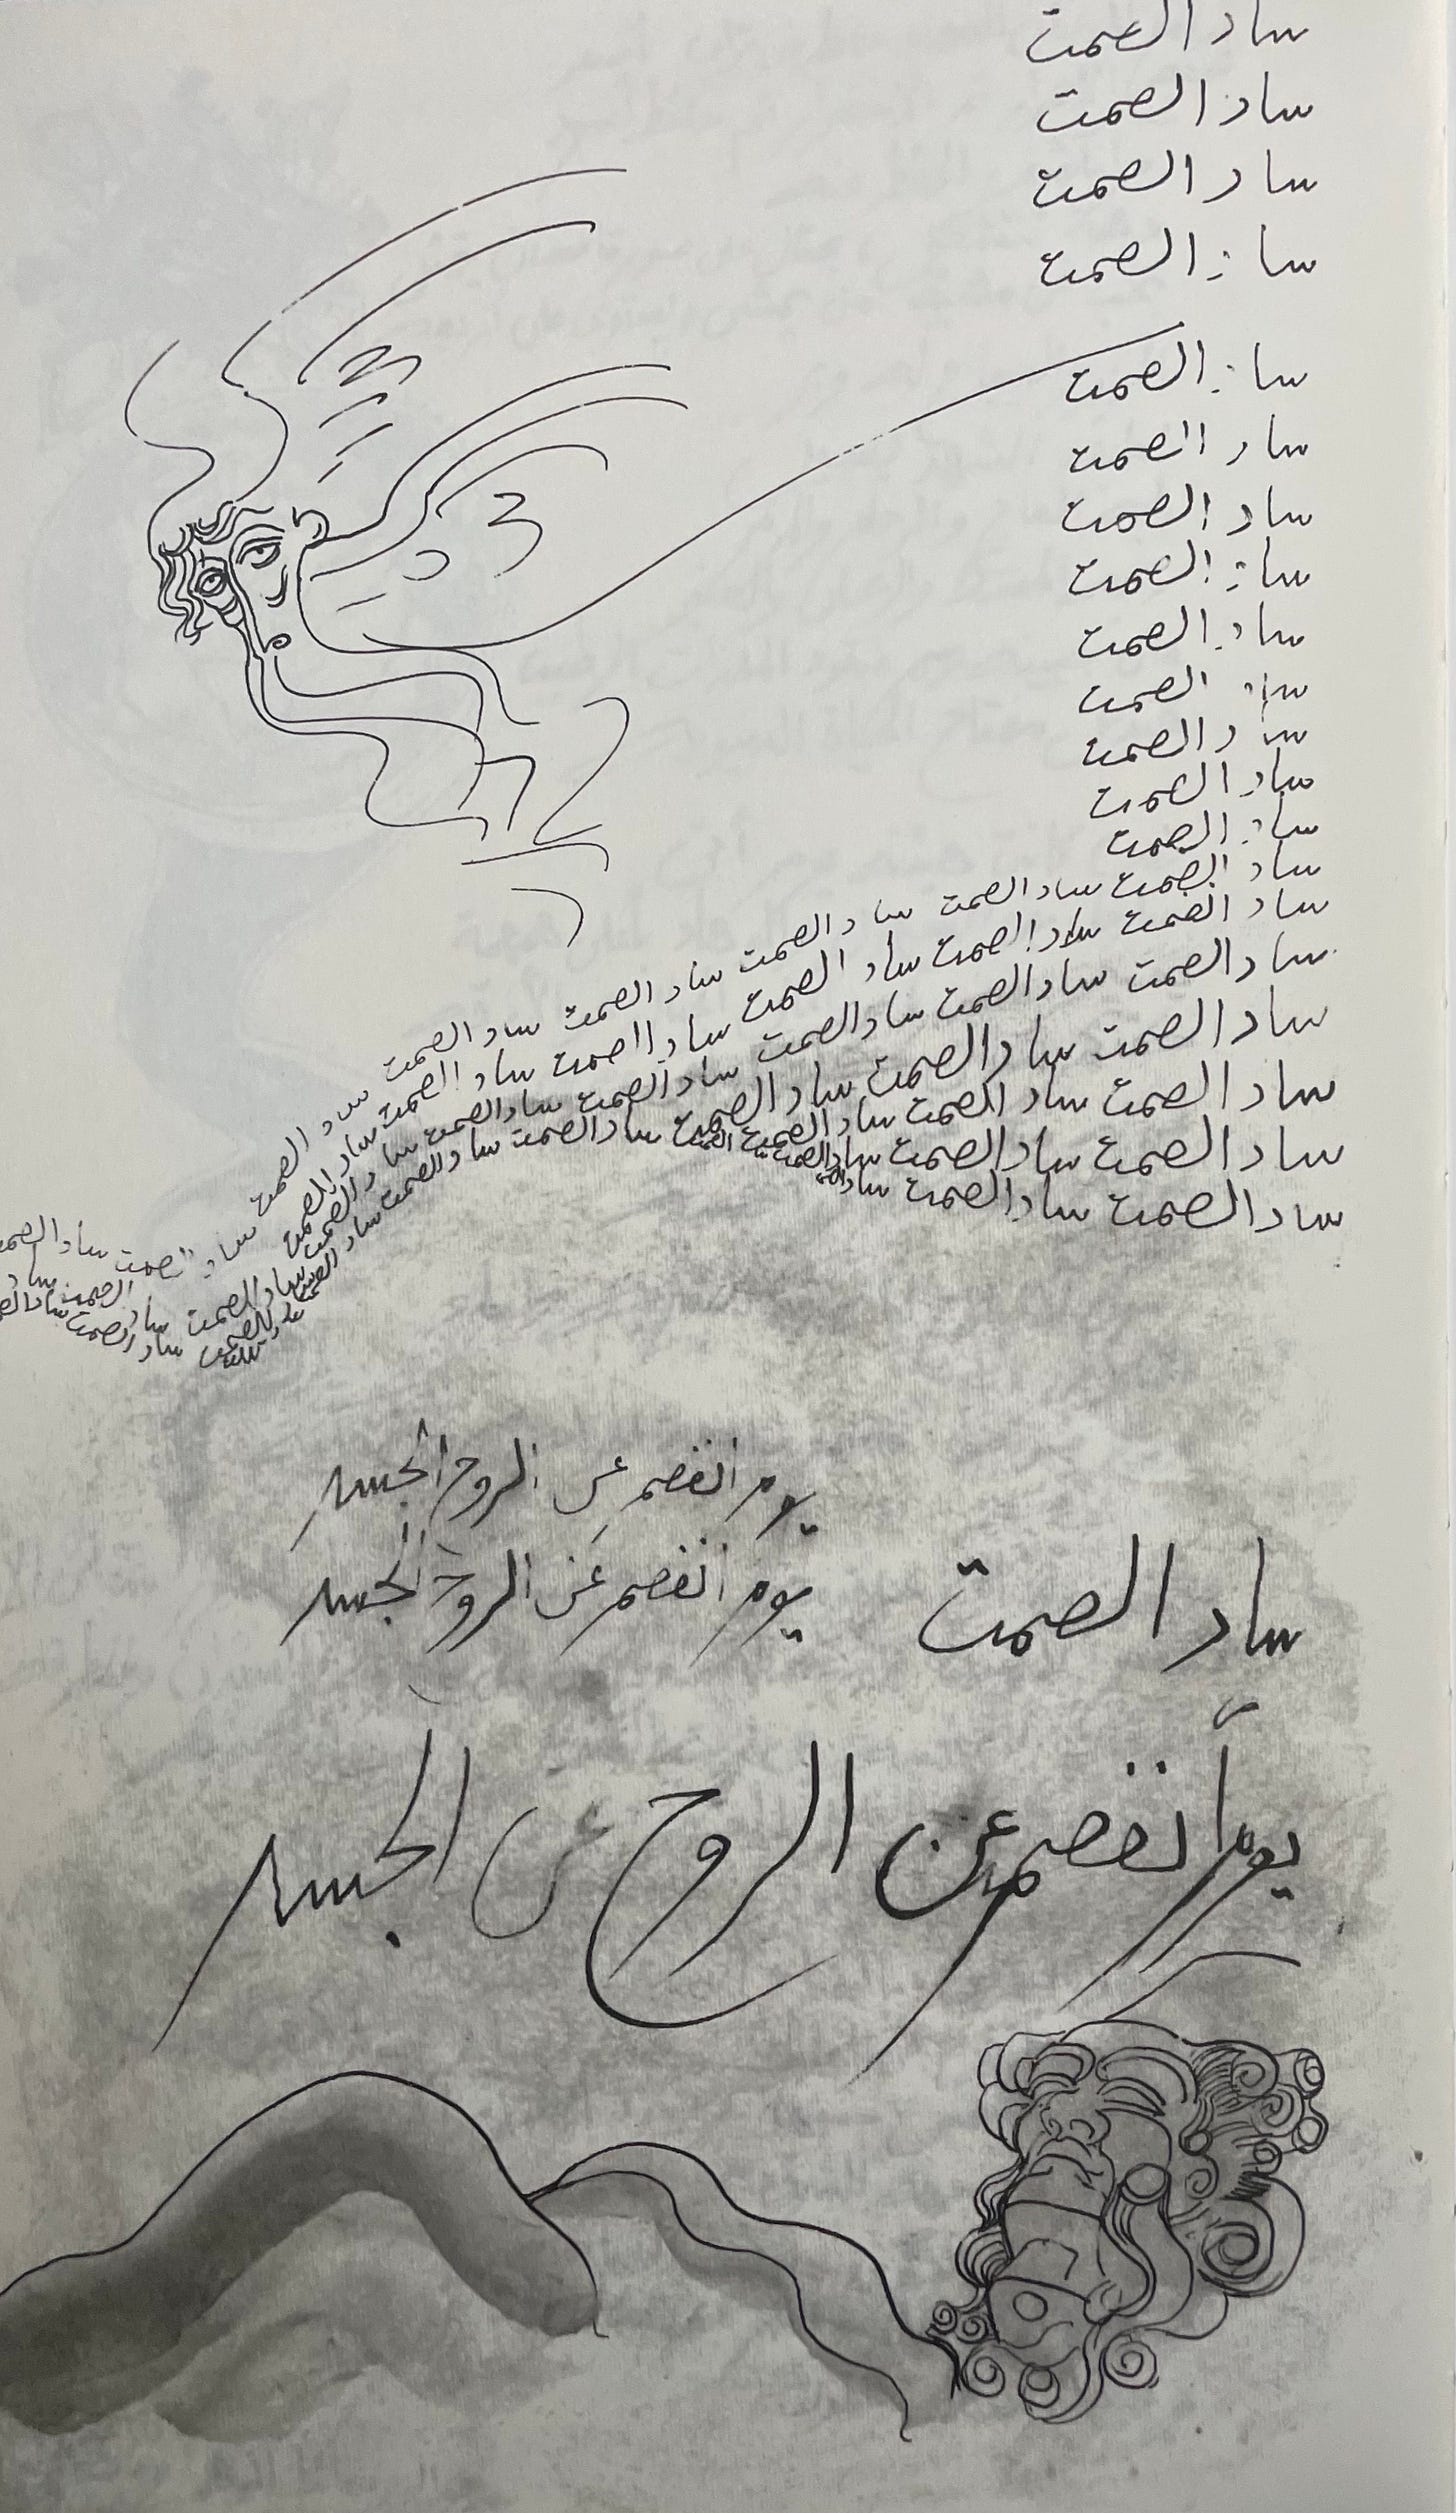 ساد الصمت
ساد الصمت
ساد الصمت
ساد الصمت
ساد الصمت
ساد الصمت
ساد الصمت
ساد الصمت
ساد الصمت
ساد الصمت
ساد الصمت
ساد الصمت
ساد الصمت
ساد الصمت ساد الصمت ساد الصمت ساد الصمت ساد الصمت ساد الصمت ساد الصمت ساد الصمت
ساد الصمت ساد الصمت ساد الصمت ساد الصمت ساد الصمت ساد الصمت
ساد الصمت ساد الصمت ساد الصمت ساد الصمت ساد الصمت ساد الصمت ساد الصمت
ساد الصمت ساد الصمت ساد الصمت ساد الصمت ساد الصمت
ساد الصمت ساد الصمت ساد الصمت
ساد الصمت ساد الصمت ساد الصمت
ساد الصمت ساد الصمت ساد
يوم انفصم عن الروح الجسد
يوم انفصم عن الروح الجسد
ساد الصمت
يوم أنفصم عن الروح عن الجسد